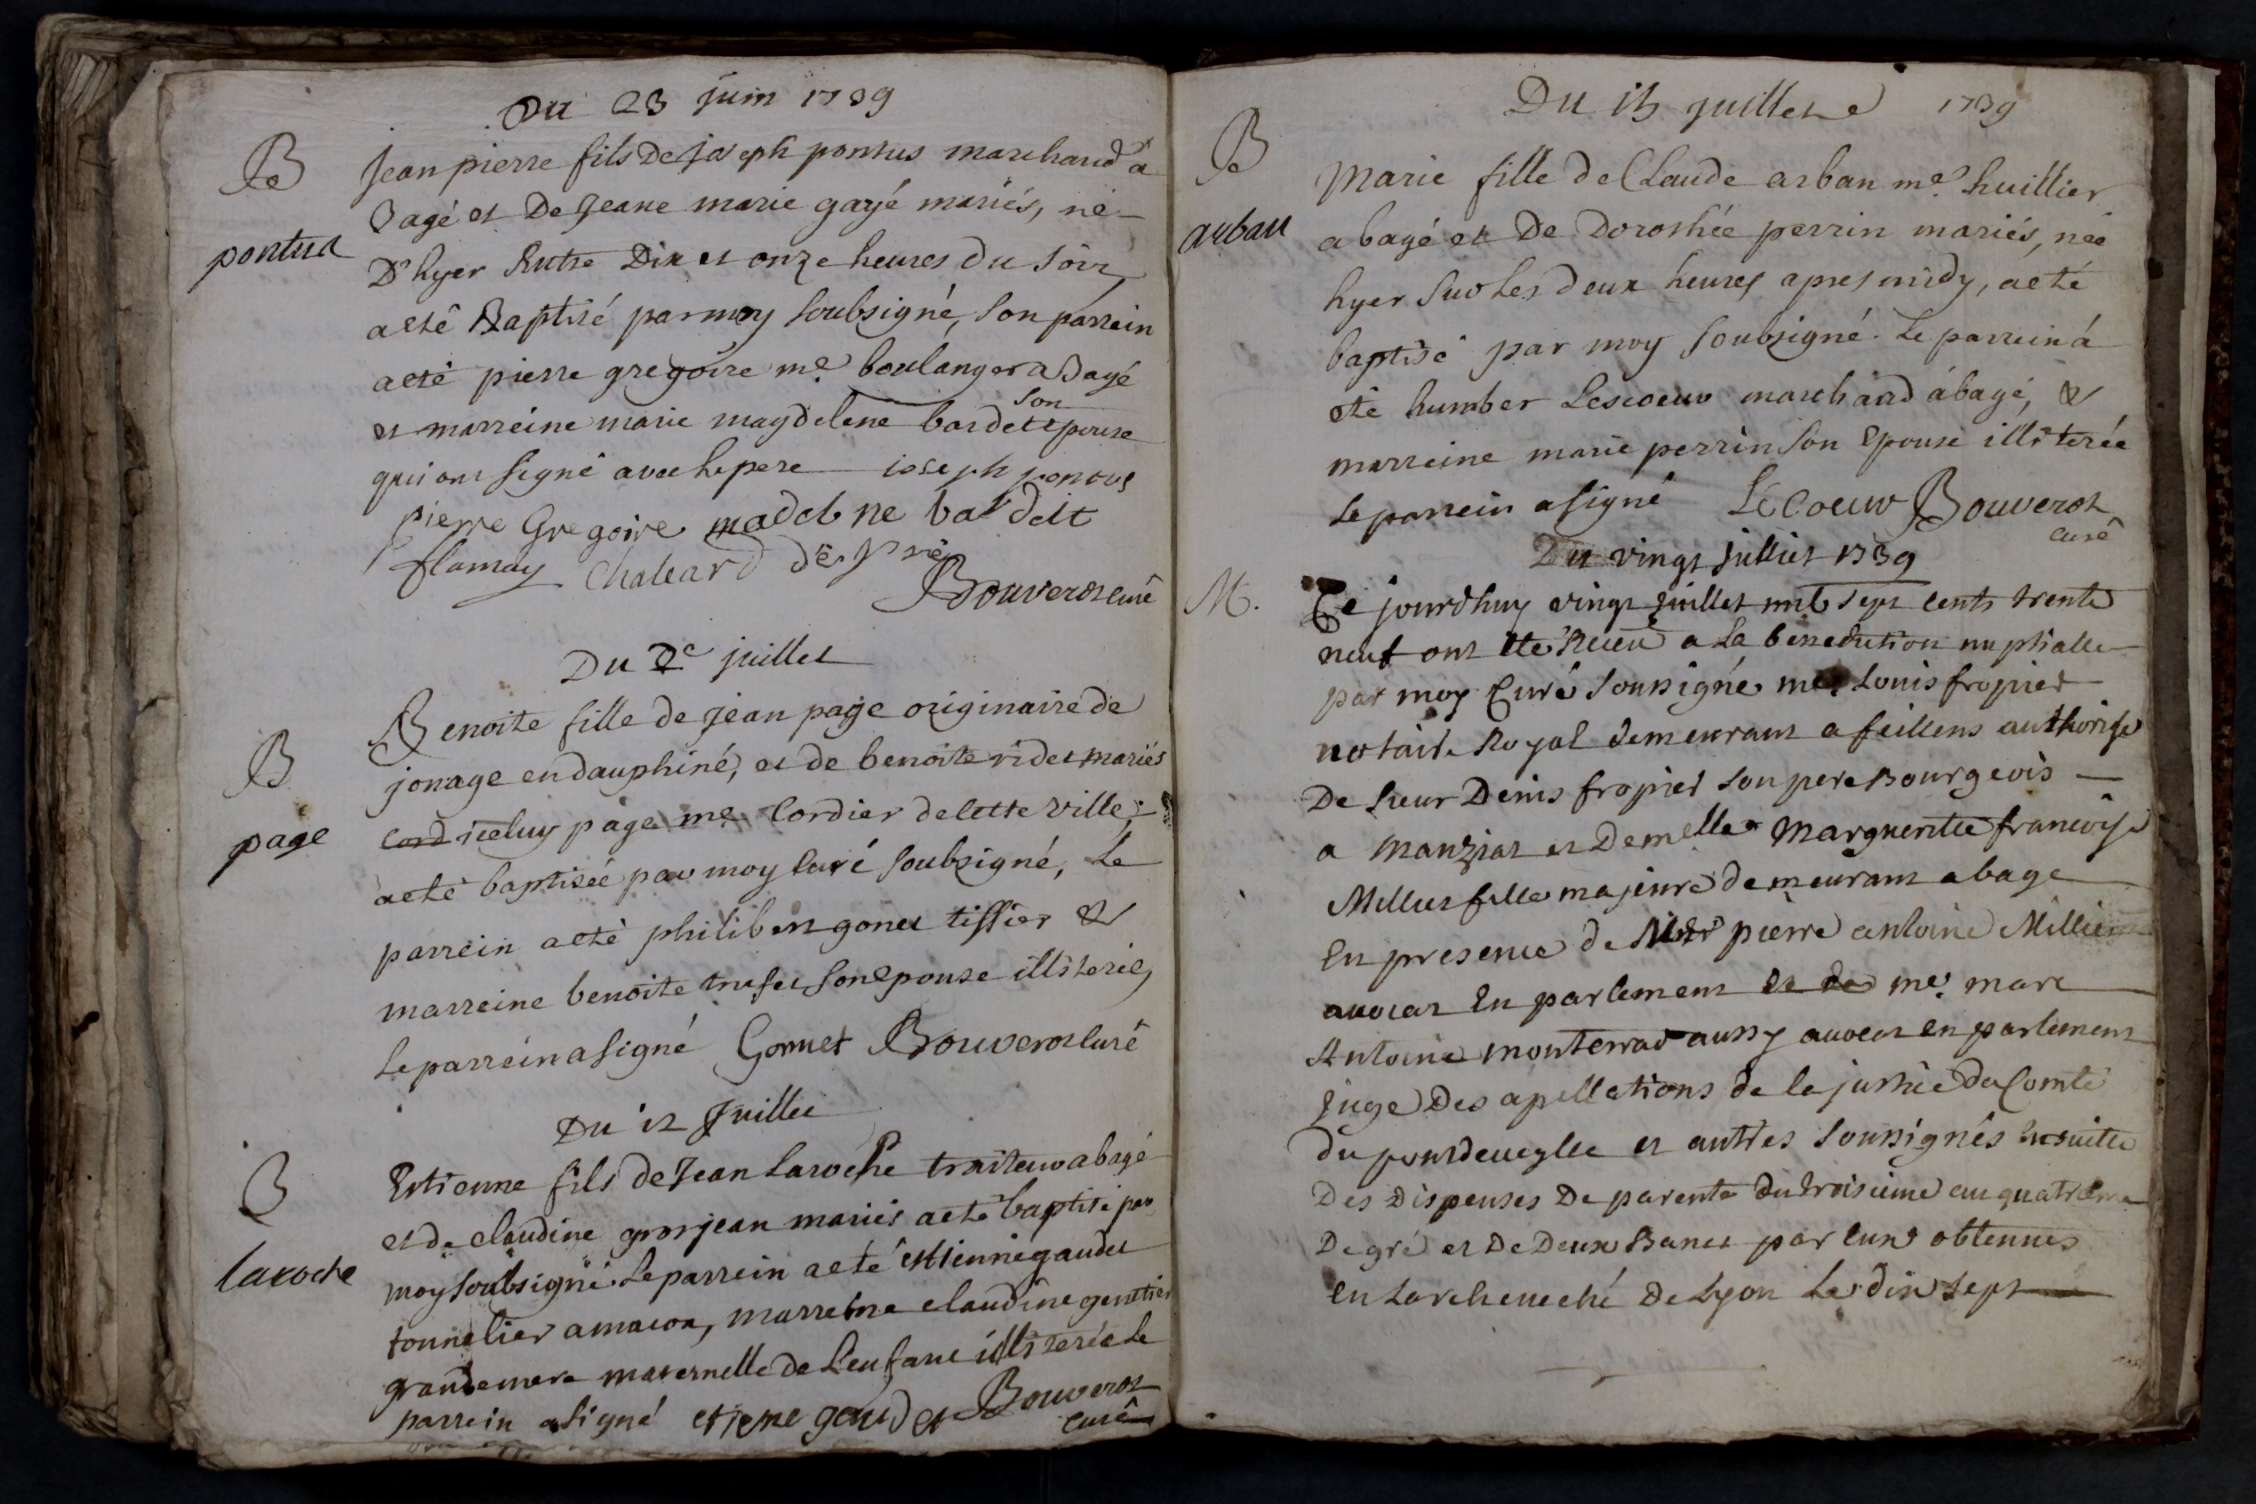 Du 23 juin 1739
B
pontus
Jean pierre fils De joseph pontus marchand a
Bagé et De Jeane marie gayé mariés, né
D'hyer Entre Dix et onze heures du soir
a esté Baptisé par moy soubsigné, son parrein
a eté pierre gregoire me. boulanger a Bagé
et marreine marie magdelene bardet son epouse
qui ont signé avec le pere joseph pontus
pierre Gregoire madelene bardelt
flamay Chaleard
Bouverot curé
Du 2e juillet
B
page
Benoite fille de Jean page originaire de
jonage en dauphiné, et de benoite ridet mariés
cord iceluy page me. Cordier de cette ville,
a eté baptisée par moy curé soubsigné, Le
parrein a eté philibert gonet tissier &
marreine benoite trufet son epouse illiterée,
Le parrein a signé Gonnet Bouverot curé
Du 12 Juillet
B
laroche
Estienne fils de Jean Laroche traiteur a bagé
et de claudine grosjean mariés a eté baptisé par
moy soubsigné. Le parrein a eté estienne gaudet
tonnelier a macon, marreine claudine gentier
grandemere maternelle de L'enfant illiterée Le
parrein a signé etiene gaudet Bouverot
curé
Du 15 juillet 1739
B
arban
Marie fille de Claude arban me. huillier
a bagé et De Dorothée perrin mariés, née
hyer sur Les deux heures apres midy, a eté
baptisé par moy soubsigné. Le parrein á
eté humber Lescoeur marchand á bagé, &
marreine marie perrin son Epouse illiterée
Le parrein a signé LeCoeur Bouverot
curé
Du vingt juillet 1739
M.
Ce jourdhuy vingt juillet mil sept cents trente
neuf ont eté Receu a La benediction nuptialle
par moy Curé soussigné me. Louis fropier
notaire Royal demeurant a feillens authorise
De sieur Denis fropier son pere Bourgeois
a Manziat et Demelle Marguerite francoise
Millier fille majeure demeurant a bage
En presence de pierre antoine Millier
avocat En parlement et de me. marc
Antoine monterrad aussy avocat en parlement
juge Des apellations de la justice du Comté
du pontdeveylle et autres soussignés Ensuitte
Des Dispenses De parenté du troisieme au quatrieme
Degré et De Deux Bancs par eux obtenues
en Larcheveché De Lyon Le dix sept